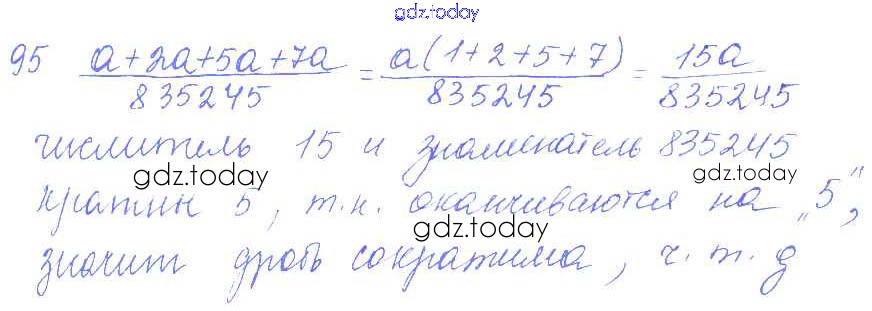 gdz.today
95 (a+2a+5a+7a)/835245 = a(1+2+5+7)/835245 = 15a/835245
числитель 15 и знаменатель 835245
gdz.today gdz.today
кратны 5, т.к. оканчиваются на „5",
gdz.today
значит дробь сократима, ч.т.д